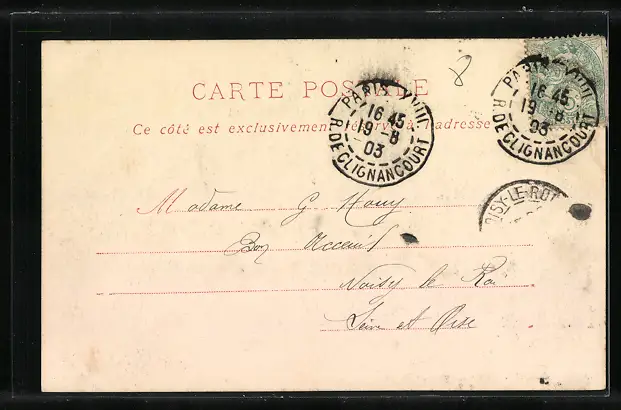 CARTE POSTALE
Ce côté est exclusivement réservé à l'adresse
8
PARIS XVIII
16 45
19 - 8
03
R. DE CLIGNANCOURT
PARIS XVIII
16 45
19 - 8
03
R. DE CLIGNANCOURT
OISY-LE-RO
Madame G
Noisy le Ro
Seine et Oise